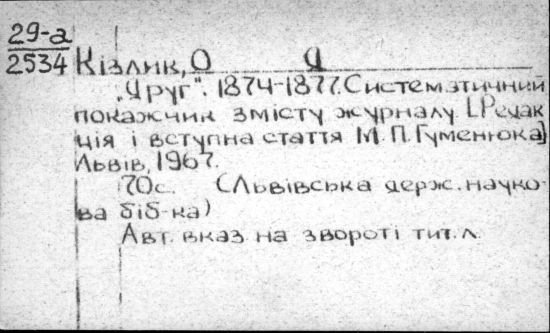 29-а
2534
Кізлик, О Д
„Друг". 1874-1877. Систематичний
покажчик змісту журналу. [Редак
ція і вступна стаття М.П. Гуменюка]
Львів, 1967.
70с. (Львівська держ. науко-
ва біб-ка)
Авт. вказ. на звороті тит. л.